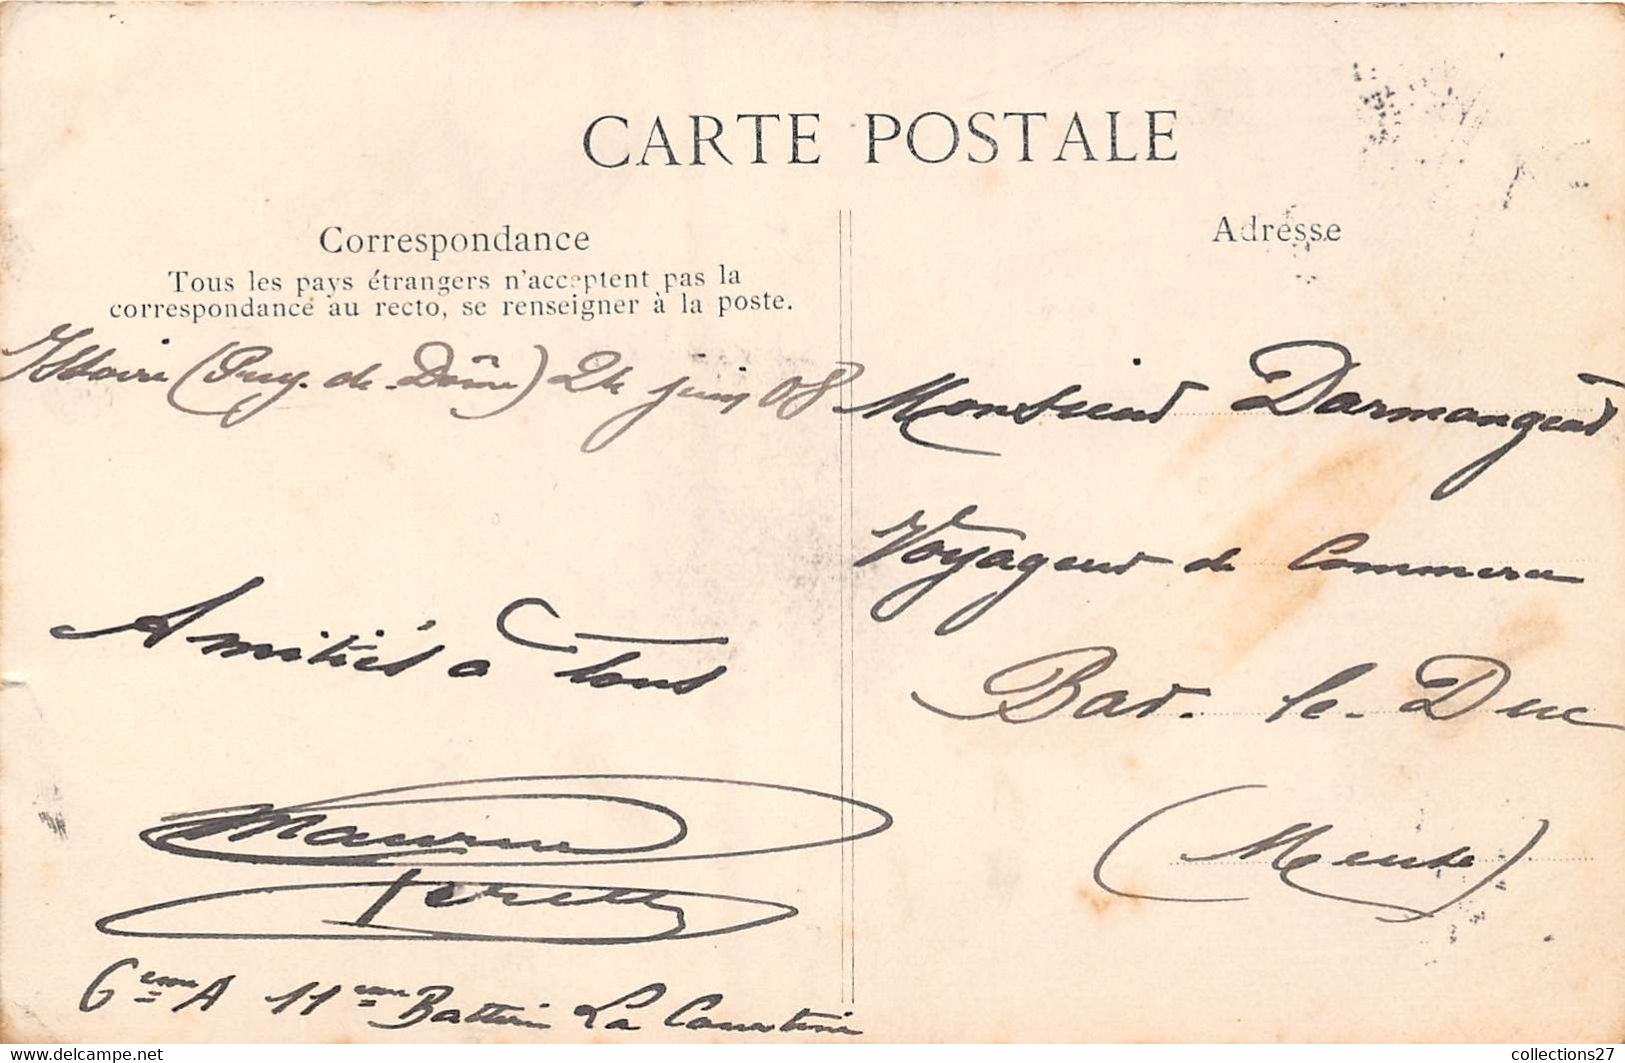 CARTE POSTALE
Correspondance
Tous les pays étrangers n'acceptent pas la
correspondance au recto, se renseigner à la poste.
Issoire (Puy-de-Dôme) 24 juin 08
Amitiés à tous
Maurice
6ème A 11ème Batterie La Courtine
Adresse
Monsieur Darmangeat
Voyageur de Commerce
Bar-le-Duc
(Meuse)
collections27